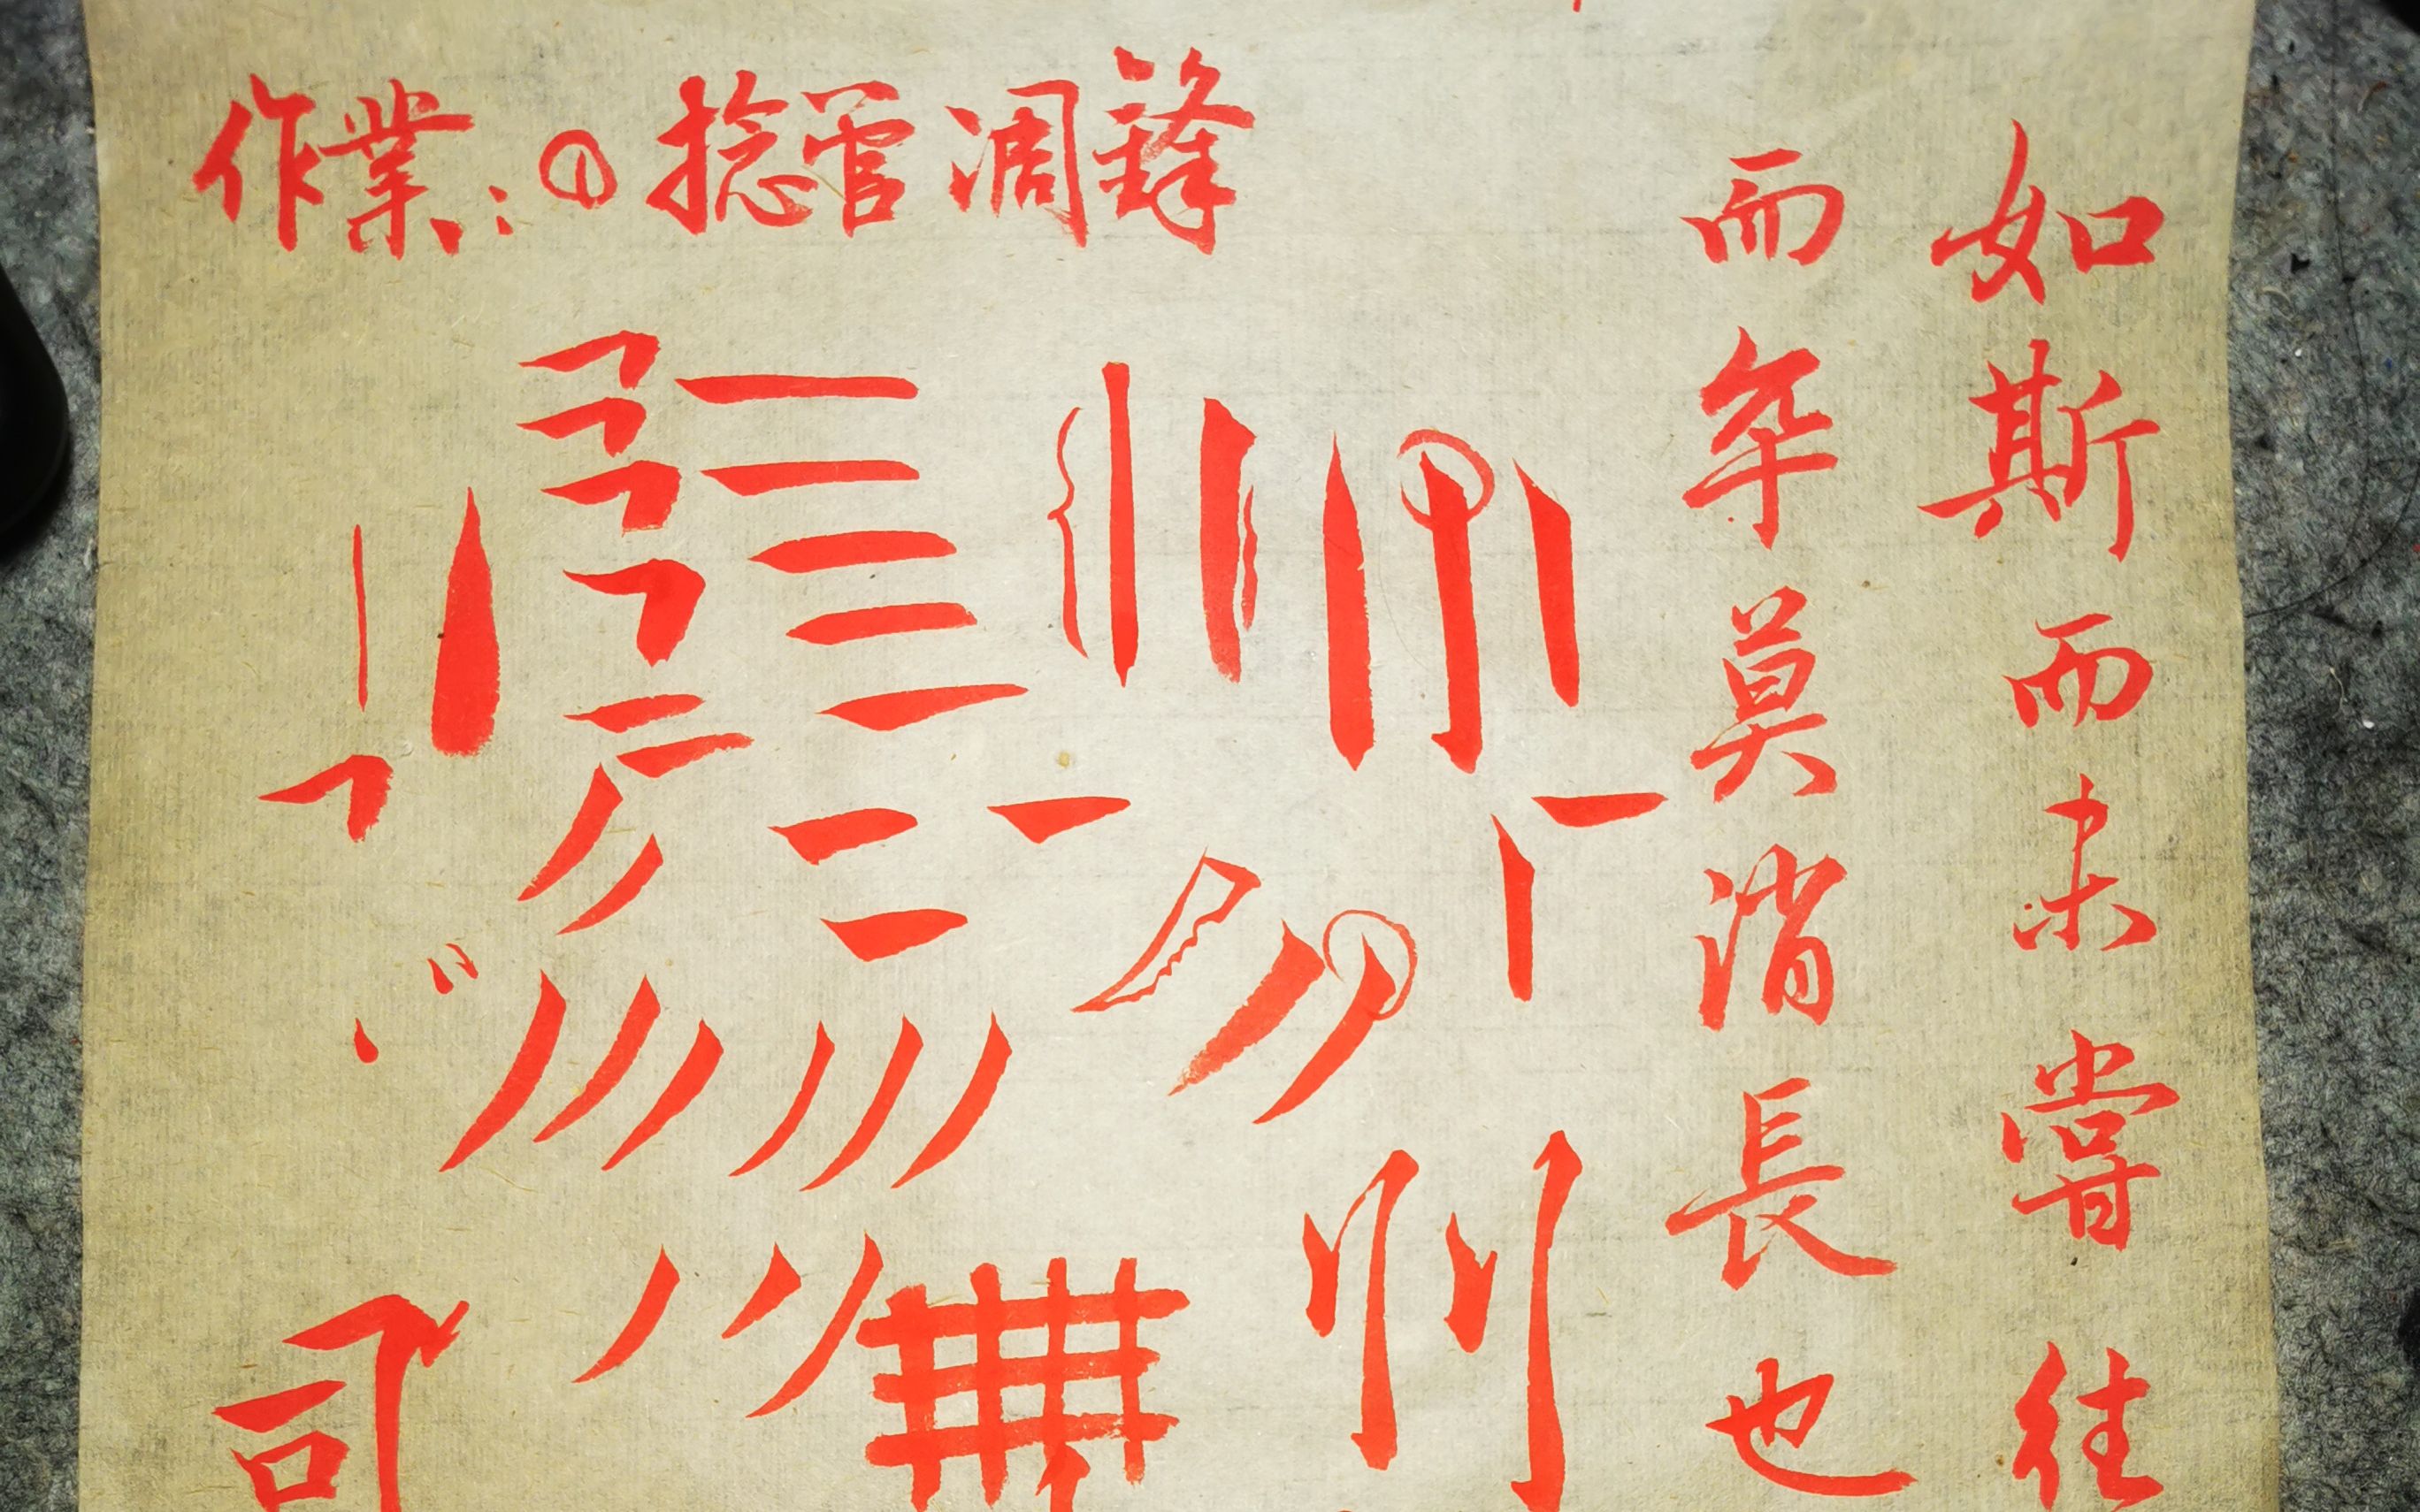 如斯而未嘗往
而卒莫消長也
作業:①捻管调鋒
司